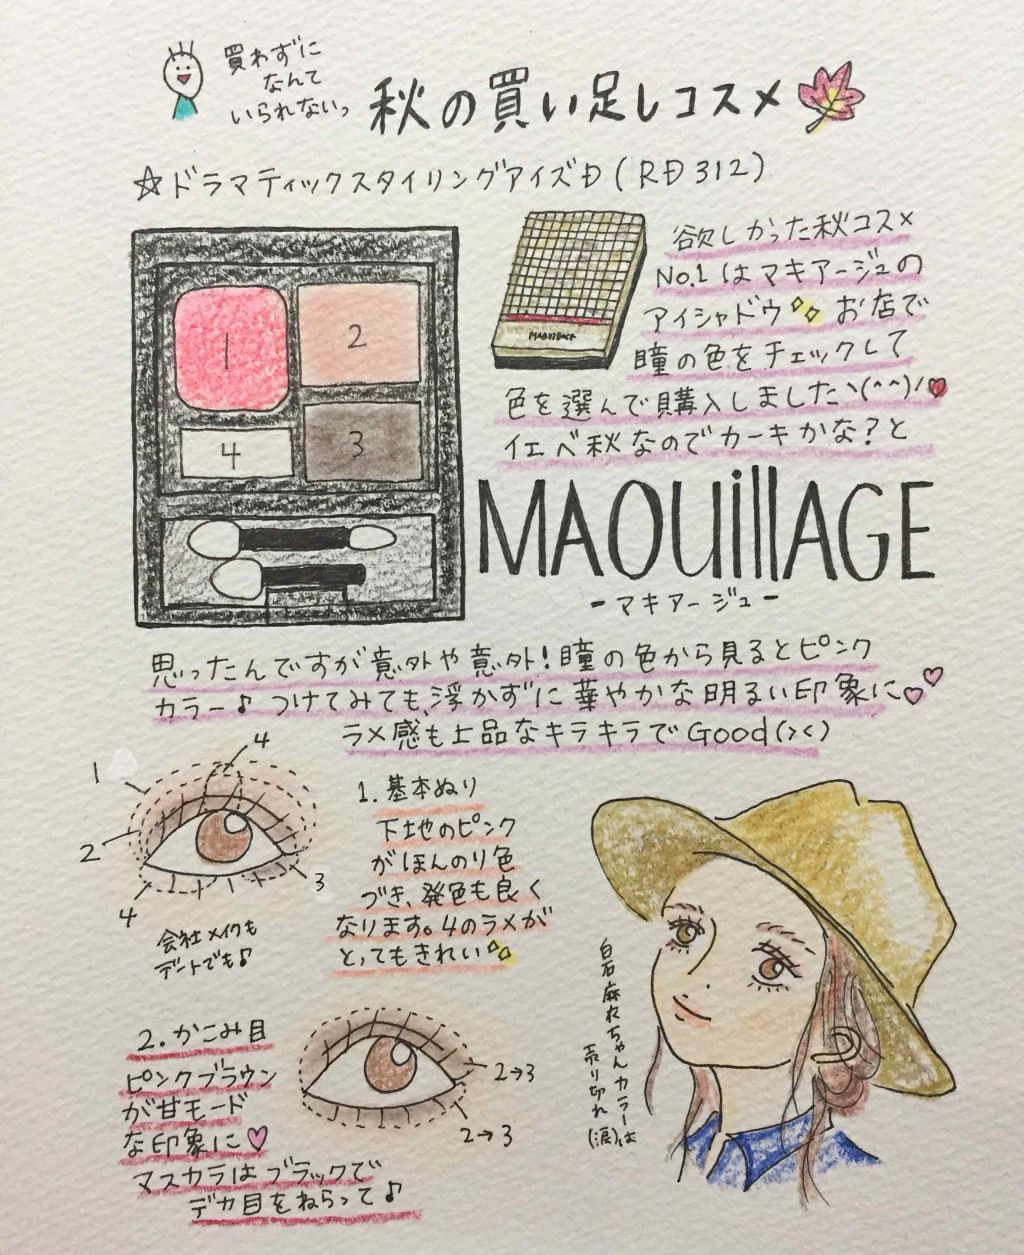 買わずに
なんて
いられないっ
秋の買い足しコスメ
☆ドラマティックスタイリングアイズD(RD312)
1
2
3
4
MAQUillAGE
欲しかった秋コスメ
No.1はマキアージュの
アイシャドウ お店で
瞳の色をチェックして
色を選んで購入しましたヽ(^^)ノ♥
イエベ秋なのでカーキかな?と
MAQUillAGE
-マキアージュ-
思ったんですが意外や意外!瞳の色から見るとピンク
カラー♪つけてみても、浮かずに華やかな明るい印象に♡♡
ラメ感も上品なキラキラでGood(><)
1
4
2
4
3
会社メイクも
デートでも♪
1. 基本ぬり
下地のピンク
がほんのり色
づき、発色も良く
なります。4のラメが
とってもきれい
2. かこみ目
ピンクブラウン
が甘モード
な印象に♡
マスカラはブラックで
デカ目をねらって♪
2→3
2→3
白石麻衣ちゃんカラーは
売り切れ(涙)